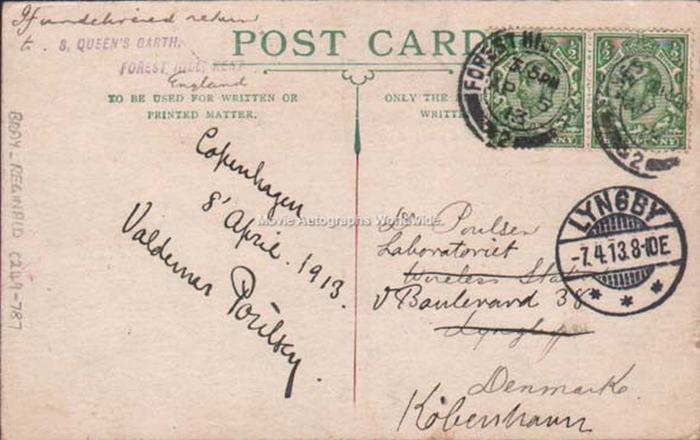 If undelivered return
to 8, QUEEN'S GARTH,
FOREST HILL, KENT
England
POST CARD
TO BE USED FOR WRITTEN OR
PRINTED MATTER.
ONLY THE
WRITT
FOREST HILL
5.15PM
AP 5
13
Copenhagen
8' April. 1913.
Valdemar Poulsen.
Movie Autographs Worldwide
Poulsen
Laboratoriet
Wireless Stat
V Boulevard 38
Lyngby
Denmark
København
LYNGBY
-7.4.13.8-10E
* * *